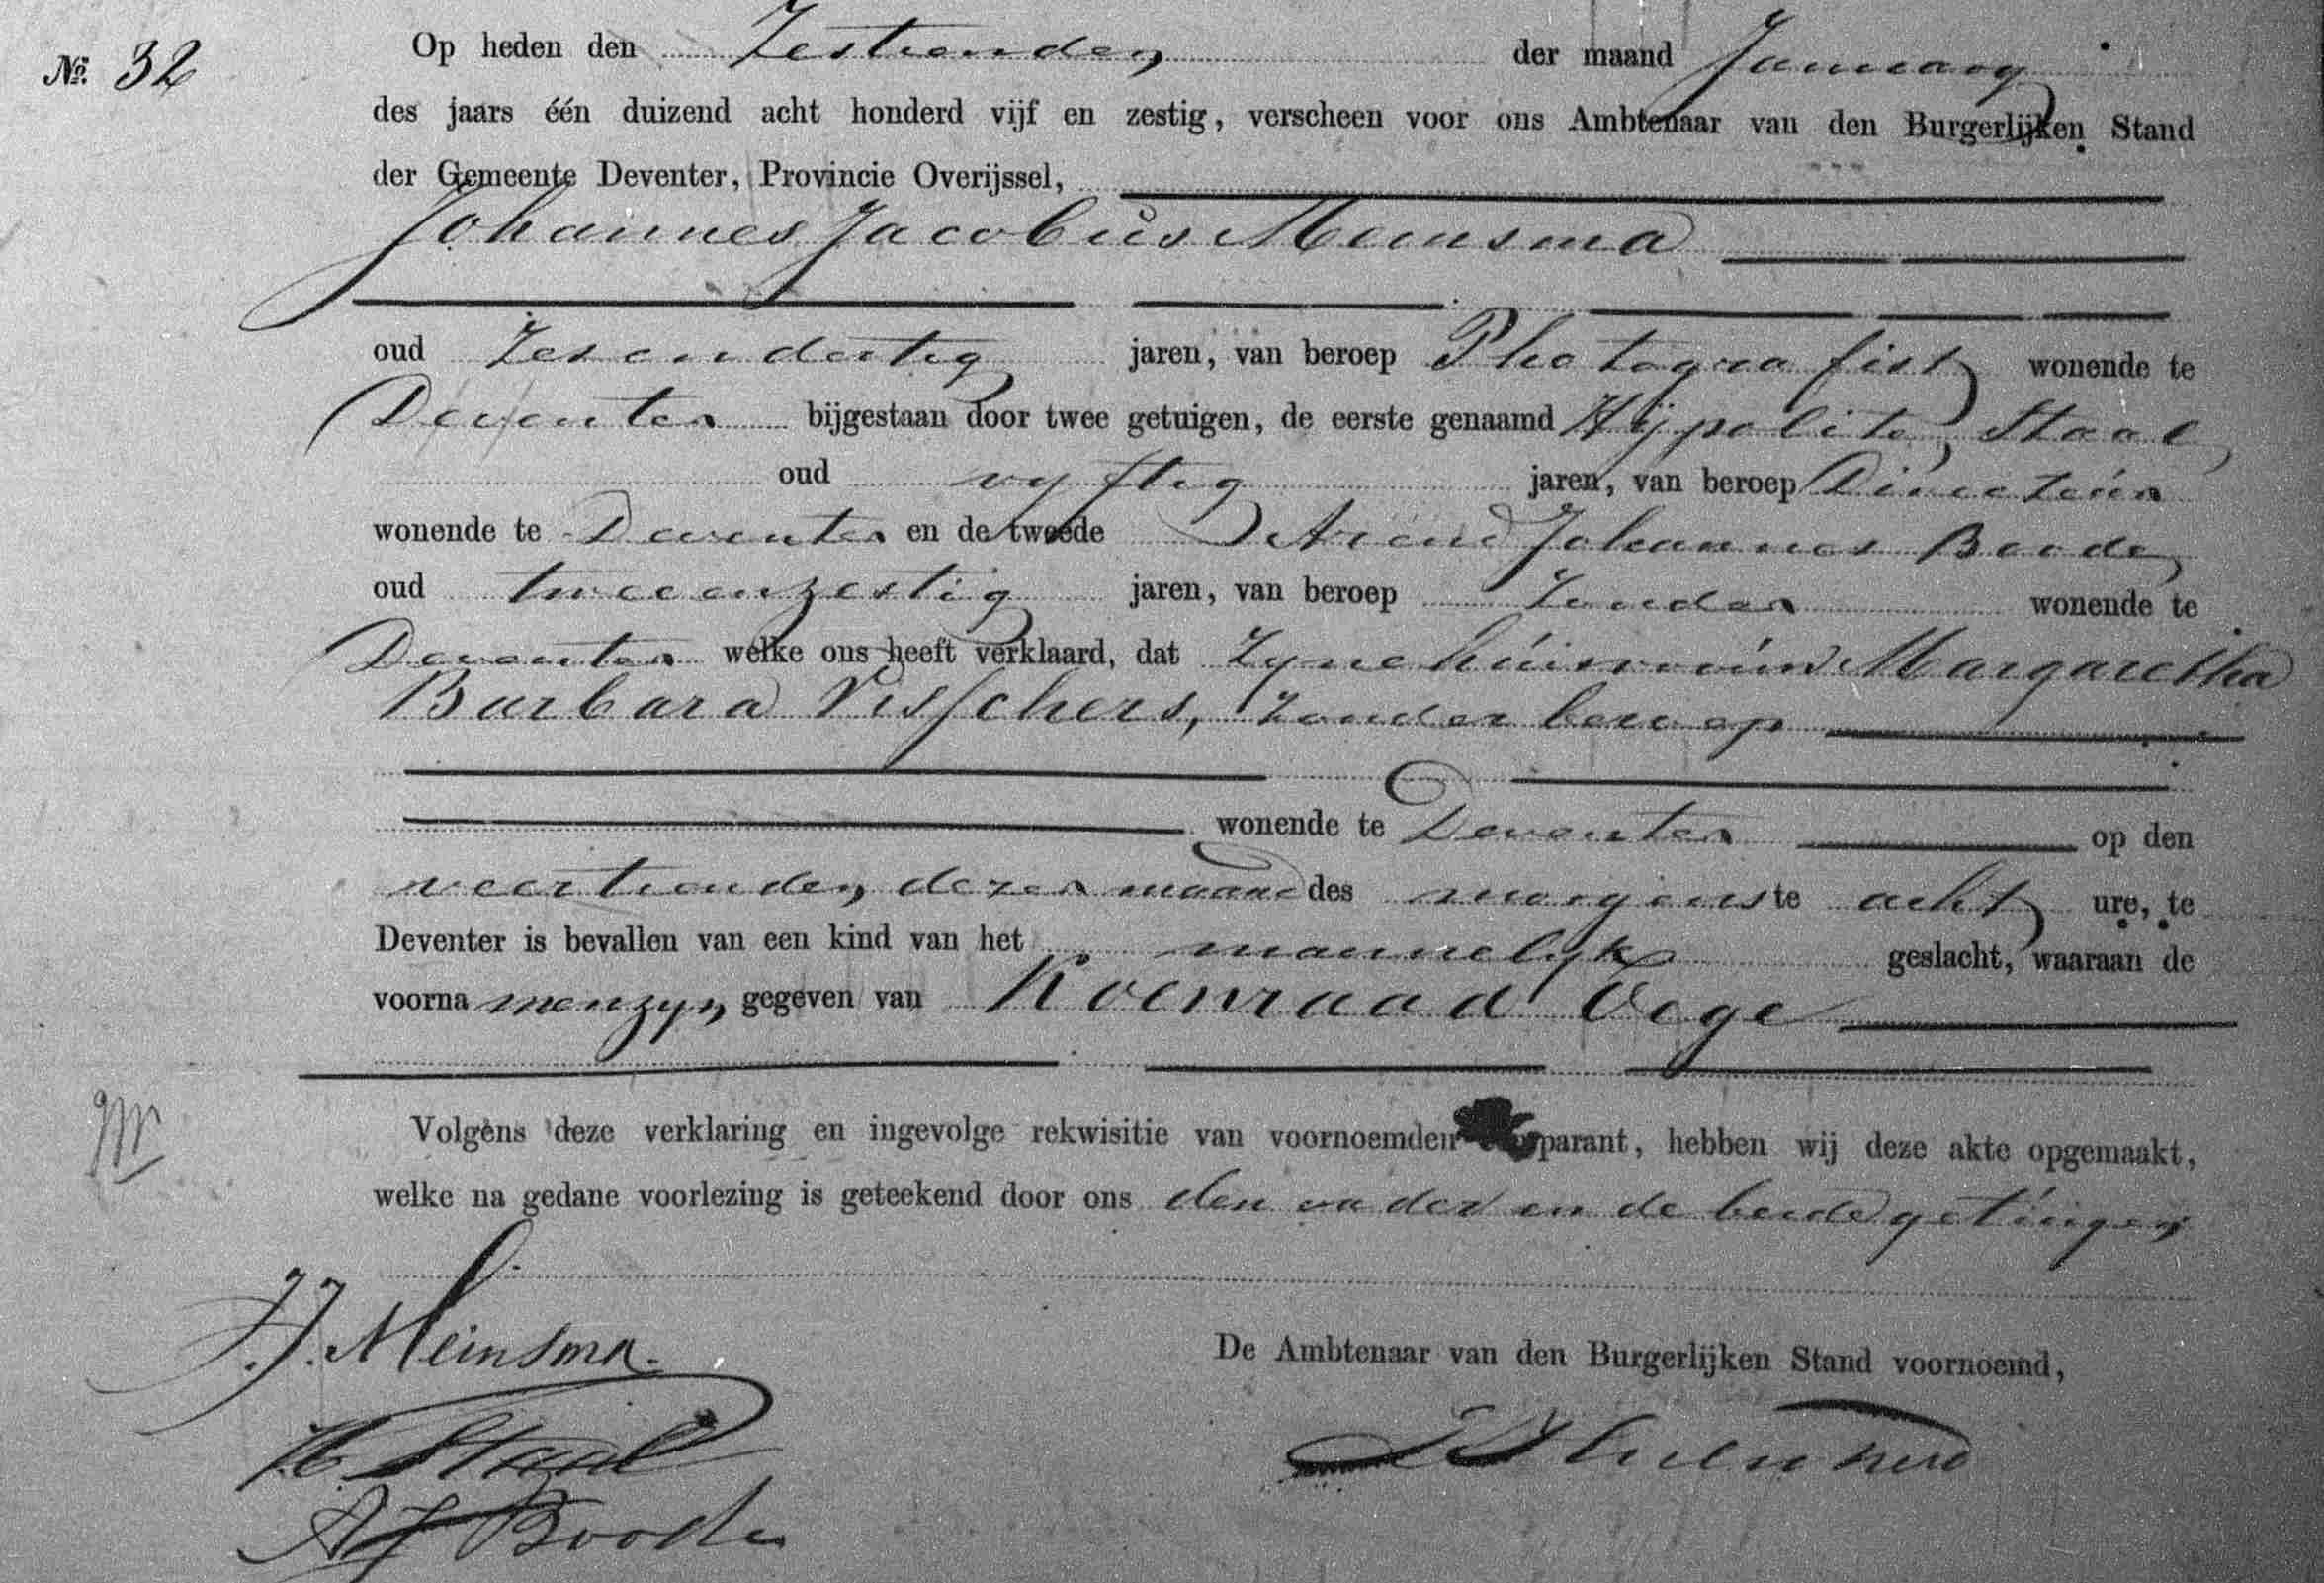 No. 32
Op heden den Zestienden der maand January
des jaars één duizend acht honderd vijf en zestig, verscheen voor ons Ambtenaar van den Burgerlijken Stand
der Gemeente Deventer, Provincie Overijssel,
Johannes Jacobus Meinsma
oud Zesendertig jaren, van beroep Photografist wonende te
Deventer bijgestaan door twee getuigen, de eerste genaamd Hijpolite Staal
oud vyftig jaren, van beroep Directeur
wonende te Deventer en de tweede Arend Johannes Boode
oud tweeenzestig jaren, van beroep Zonder wonende te
Deventer welke ons heeft verklaard, dat Zyne huisvrouw Margaretha
Barbara Visschers, zonder beroep
wonende te Deventer op den
veertienden dezer maand des morgens te acht ure, te
Deventer is bevallen van een kind van het mannelyk geslacht, waaraan de
voornamen zyn gegeven van Koenraad Oege
Volgens deze verklaring en ingevolge rekwisitie van voornoemden comparant, hebben wij deze akte opgemaakt,
welke na gedane voorlezing is geteekend door ons den vader en de beide getuigen
J.J. Meinsma.
De Ambtenaar van den Burgerlijken Stand voornoemd,
H Staal
AJ Boode